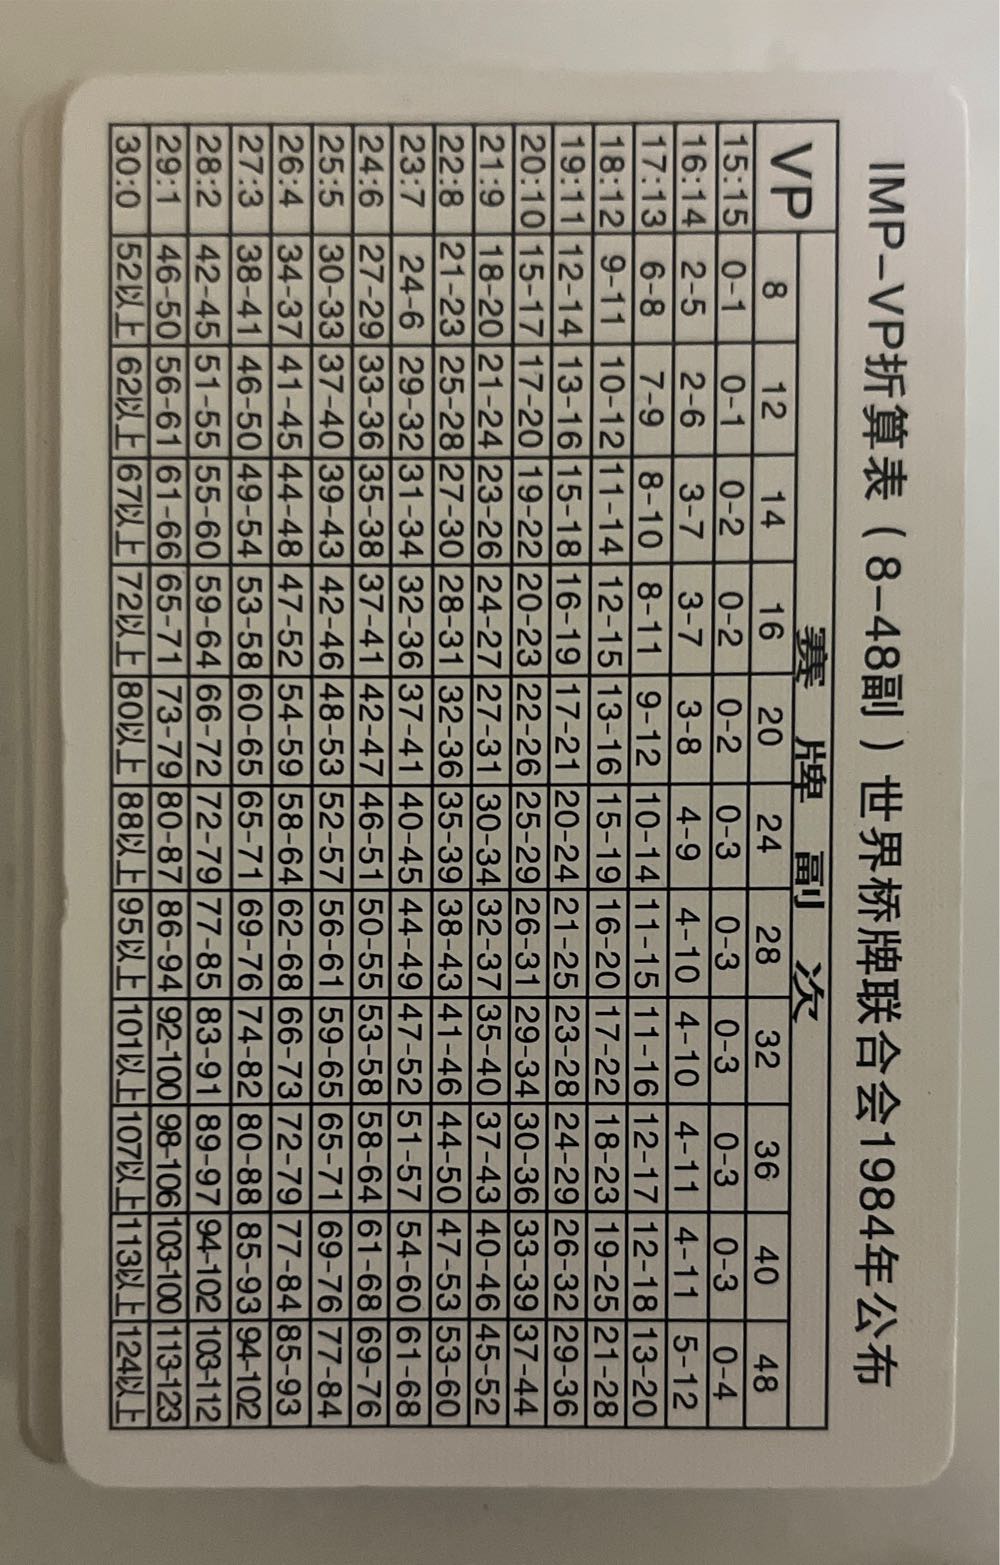 IMP-VP折算表(8-48副)世界桥牌联合会1984年公布
VP 赛牌副次
8 12 14 16 20 24 28 32 36 40 48
15:15 0-1 0-1 0-2 0-2 0-2 0-3 0-3 0-3 0-3 0-3 0-4
16:14 2-5 2-6 3-7 3-7 3-8 4-9 4-10 4-10 4-11 4-11 5-12
17:13 6-8 7-9 8-10 8-11 9-12 10-14 11-15 11-16 12-17 12-18 13-20
18:12 9-11 10-12 11-14 12-15 13-16 15-19 16-20 17-22 18-23 19-25 21-28
19:11 12-14 13-16 15-18 16-19 17-21 20-24 21-25 23-28 24-29 26-32 29-36
20:10 15-17 17-20 19-22 20-23 22-26 25-29 26-31 29-34 30-36 33-39 37-44
21:9 18-20 21-24 23-26 24-27 27-31 30-34 32-37 35-40 37-43 40-46 45-52
22:8 21-23 25-28 27-30 28-31 32-36 35-39 38-43 41-46 44-50 47-53 53-60
23:7 24-6 29-32 31-34 32-36 37-41 40-45 44-49 47-52 51-57 54-60 61-68
24:6 27-29 33-36 35-38 37-41 42-47 46-51 50-55 53-58 58-64 61-68 69-76
25:5 30-33 37-40 39-43 42-46 48-53 52-57 56-61 59-65 65-71 69-76 77-84
26:4 34-37 41-45 44-48 47-52 54-59 58-64 62-68 66-73 72-79 77-84 85-93
27:3 38-41 46-50 49-54 53-58 60-65 65-71 69-76 74-82 80-88 85-93 94-102
28:2 42-45 51-55 55-60 59-64 66-72 72-79 77-85 83-91 89-97 94-102 103-112
29:1 46-50 56-61 61-66 65-71 73-79 80-87 86-94 92-100 98-106 103-100 113-123
30:0 52以上 62以上 67以上 72以上 80以上 88以上 95以上 101以上 107以上 113以上 124以上